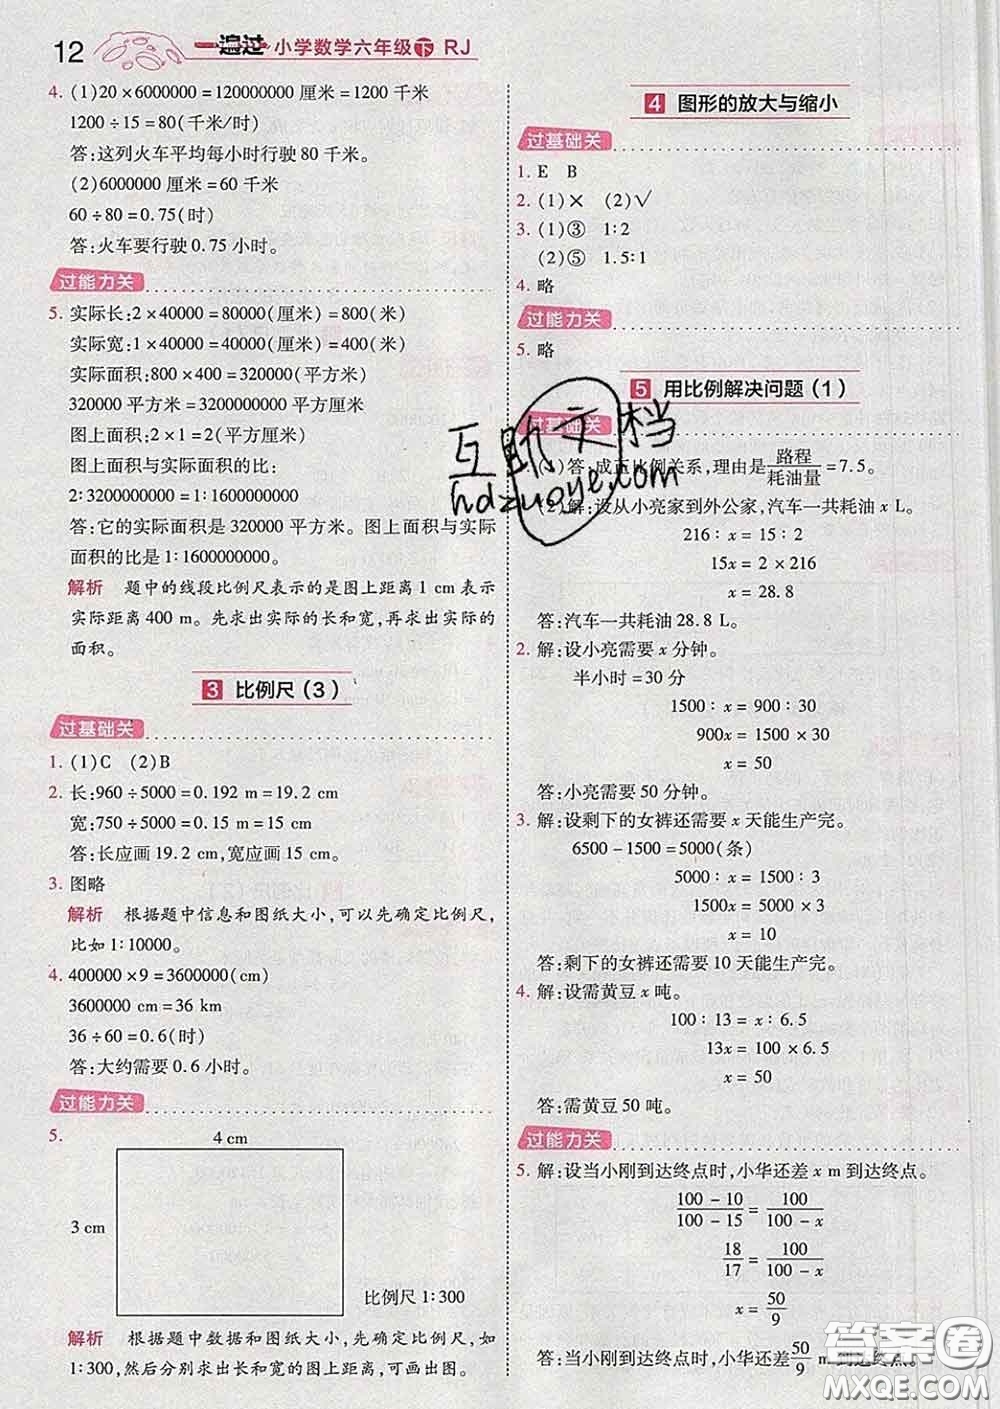 12 一遍过 小学数学六年级下 RJ
4. (1)20×6000000=120000000 厘米=1200 千米
1200÷15=80(千米/时)
答:这列火车平均每小时行驶 80 千米。
(2)6000000 厘米=60 千米
60÷80=0.75(时)
答:火车要行驶 0.75 小时。
过能力关
5. 实际长:2×40000=80000(厘米)=800(米)
实际宽:1×40000=40000(厘米)=400(米)
实际面积:800×400=320000(平方米)
320000 平方米=3200000000 平方厘米
图上面积:2×1=2(平方厘米)
图上面积与实际面积的比:
2∶3200000000=1∶1600000000
答:它的实际面积是 320000 平方米。图上面积与实际
面积的比是 1∶1600000000。
解析 题中的线段比例尺表示的是图上距离 1 cm 表示
实际距离 400 m。先求出实际的长和宽,再求出实际的
面积。
3 比例尺(3)
过基础关
1. (1)C (2)B
2. 长:960÷5000=0.192 m=19.2 cm
宽:750÷5000=0.15 m=15 cm
答:长应画 19.2 cm,宽应画 15 cm。
3. 图略
解析 根据题中信息和图纸大小,可以先确定比例尺,
比如 1∶10000。
4. 400000×9=3600000(cm)
3600000 cm=36 km
36÷60=0.6(时)
答:大约需要 0.6 小时。
过能力关
5.
4 cm
3 cm
比例尺 1∶300
解析 根据题中数据和图纸大小,先确定比例尺,如
1∶300,然后分别求出长和宽的图上距离,可画出图。
4 图形的放大与缩小
过基础关
1. E B
2. (1)× (2)√
3. (1)③ 1∶2
(2)⑤ 1.5∶1
4. 略
过能力关
5. 略
5 用比例解决问题(1)
过基础关
)答:成正比例关系,理由是路程/耗油量=7.5。
(2)解:设从小亮家到外公家,汽车一共耗油 x L。
216∶x=15∶2
15x=2×216
x=28.8
答:汽车一共耗油 28.8 L。
2. 解:设小亮需要 x 分钟。
半小时=30 分
1500∶x=900∶30
900x=1500×30
x=50
答:小亮需要 50 分钟。
3. 解:设剩下的女裤还需要 x 天能生产完。
6500-1500=5000(条)
5000∶x=1500∶3
1500x=5000×3
x=10
答:剩下的女裤还需要 10 天能生产完。
4. 解:设需黄豆 x 吨。
100∶13=x∶6.5
13x=100×6.5
x=50
答:需黄豆 50 吨。
过能力关
5. 解:设当小刚到达终点时,小华还差 x m 到达终点。
(100-10)/(100-15)=100/(100-x)
18/17=100/(100-x)
x=50/9
答:当小刚到达终点时,小华还差 50/9 m 到达终点。
互助文档
hdzuoye.com
答案圈
MXQE.COM